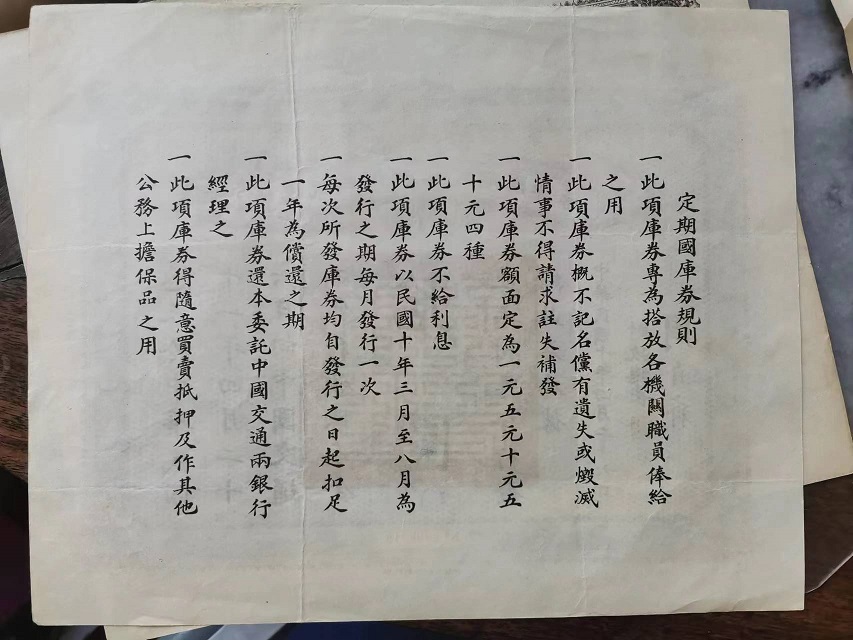 定期國庫券規則
一此項庫券專為搭放各機關職員俸給
之用
一此項庫券概不記名儻有遺失或燬滅
情事不得請求註失補發
一此項庫券額面定為一元五元十元五
十元四種
一此項庫券不給利息
一此項庫券以民國十年三月至八月為
發行之期每月發行一次
一每次所發庫券均自發行之日起扣足
一年為償還之期
一此項庫券還本委託中國交通兩銀行
經理之
一此項庫券得隨意買賣抵押及作其他
公務上擔保品之用